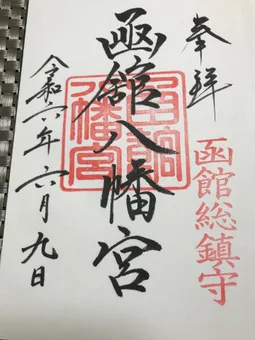 奉拝
函館総鎮守
函館八幡宮
函館八幡宮
令和六年六月九日